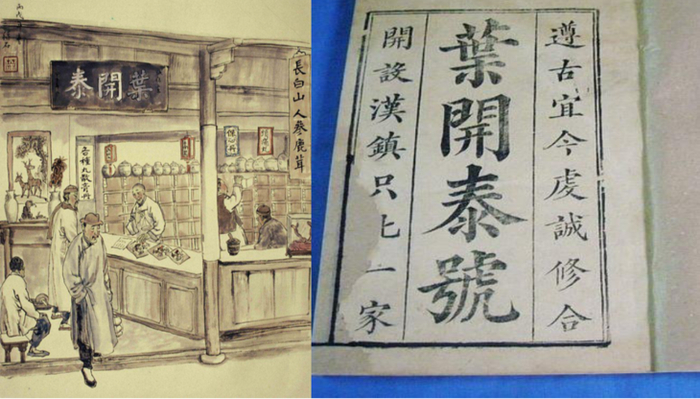 葉開泰
長白山人蔘鹿茸
各種丸散膏丹
遵古宜今虔誠修合
葉開泰號
開設漢鎮只此一家